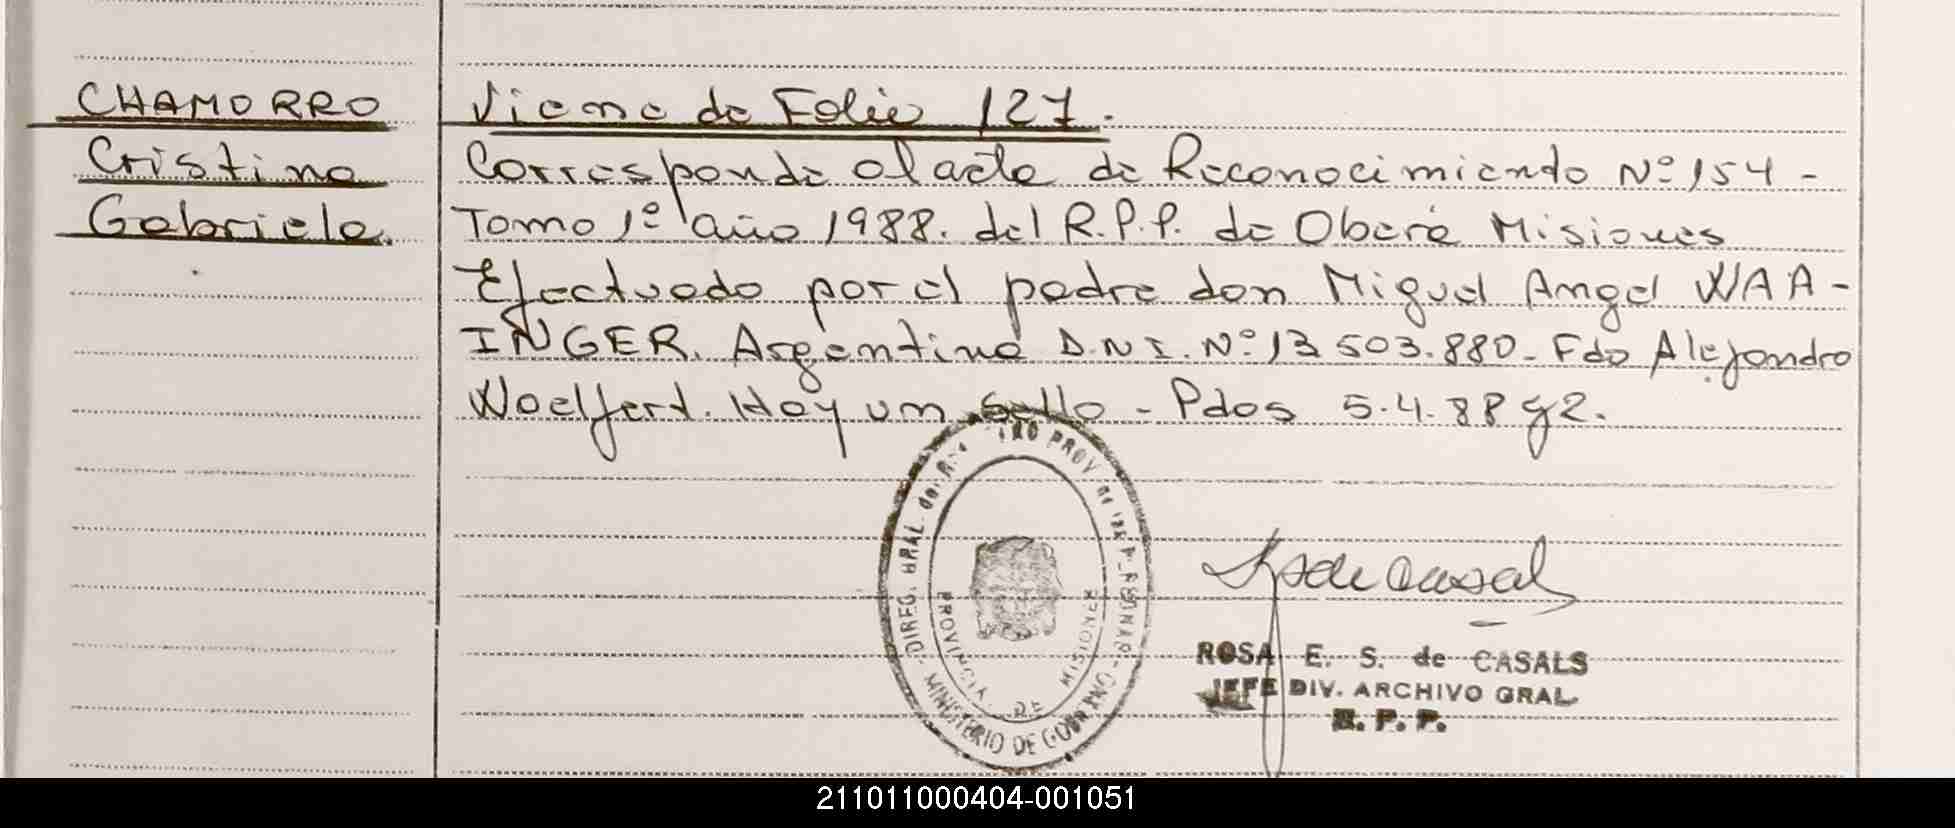 CHAMORRO
Cristina
Gabriela.
Viene de Folio 127.
Corresponde al acta de Reconocimiento Nº 154 -
Tomo 1º año 1988. del R.P.P. de Oberá Misiones
Efectuado por el padre don Miguel Angel WAA-
INGER. Argentino D.N.I. Nº 13 503.880 - Fdo Alejandro
Woelfert. Hay un Sello - Pdos 5.4.88
DIREG. GRAL. del PROV. de
MINISTERIO DE GOBIERNO
PROVINCIA DE MISIONES
ROSA E. S. de CASALS
JEFE DIV. ARCHIVO GRAL.
R. P. P.
211011000404-001051